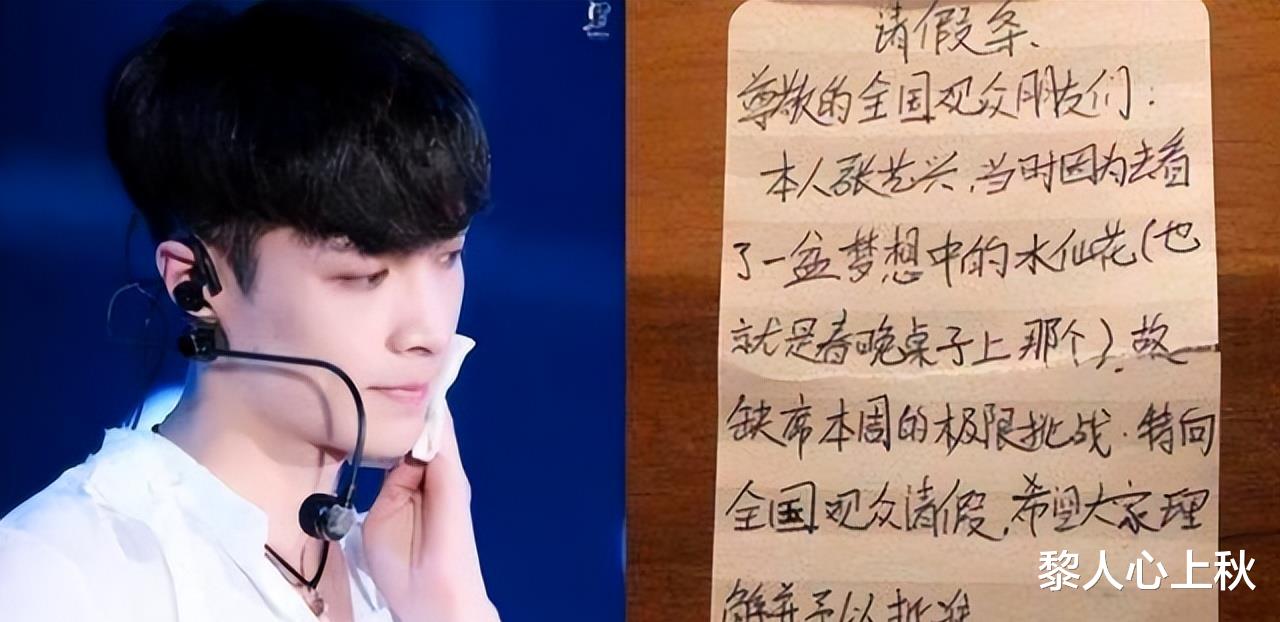 请假条、
尊敬的全国观众朋友们：
本人张艺兴，当时因为去看
了一盆梦想中的水仙花（也
就是春晚桌子上那个），故
缺席本周的极限挑战.特向
全国观众请假，希望大家理
解并予以批准
黎人心上秋